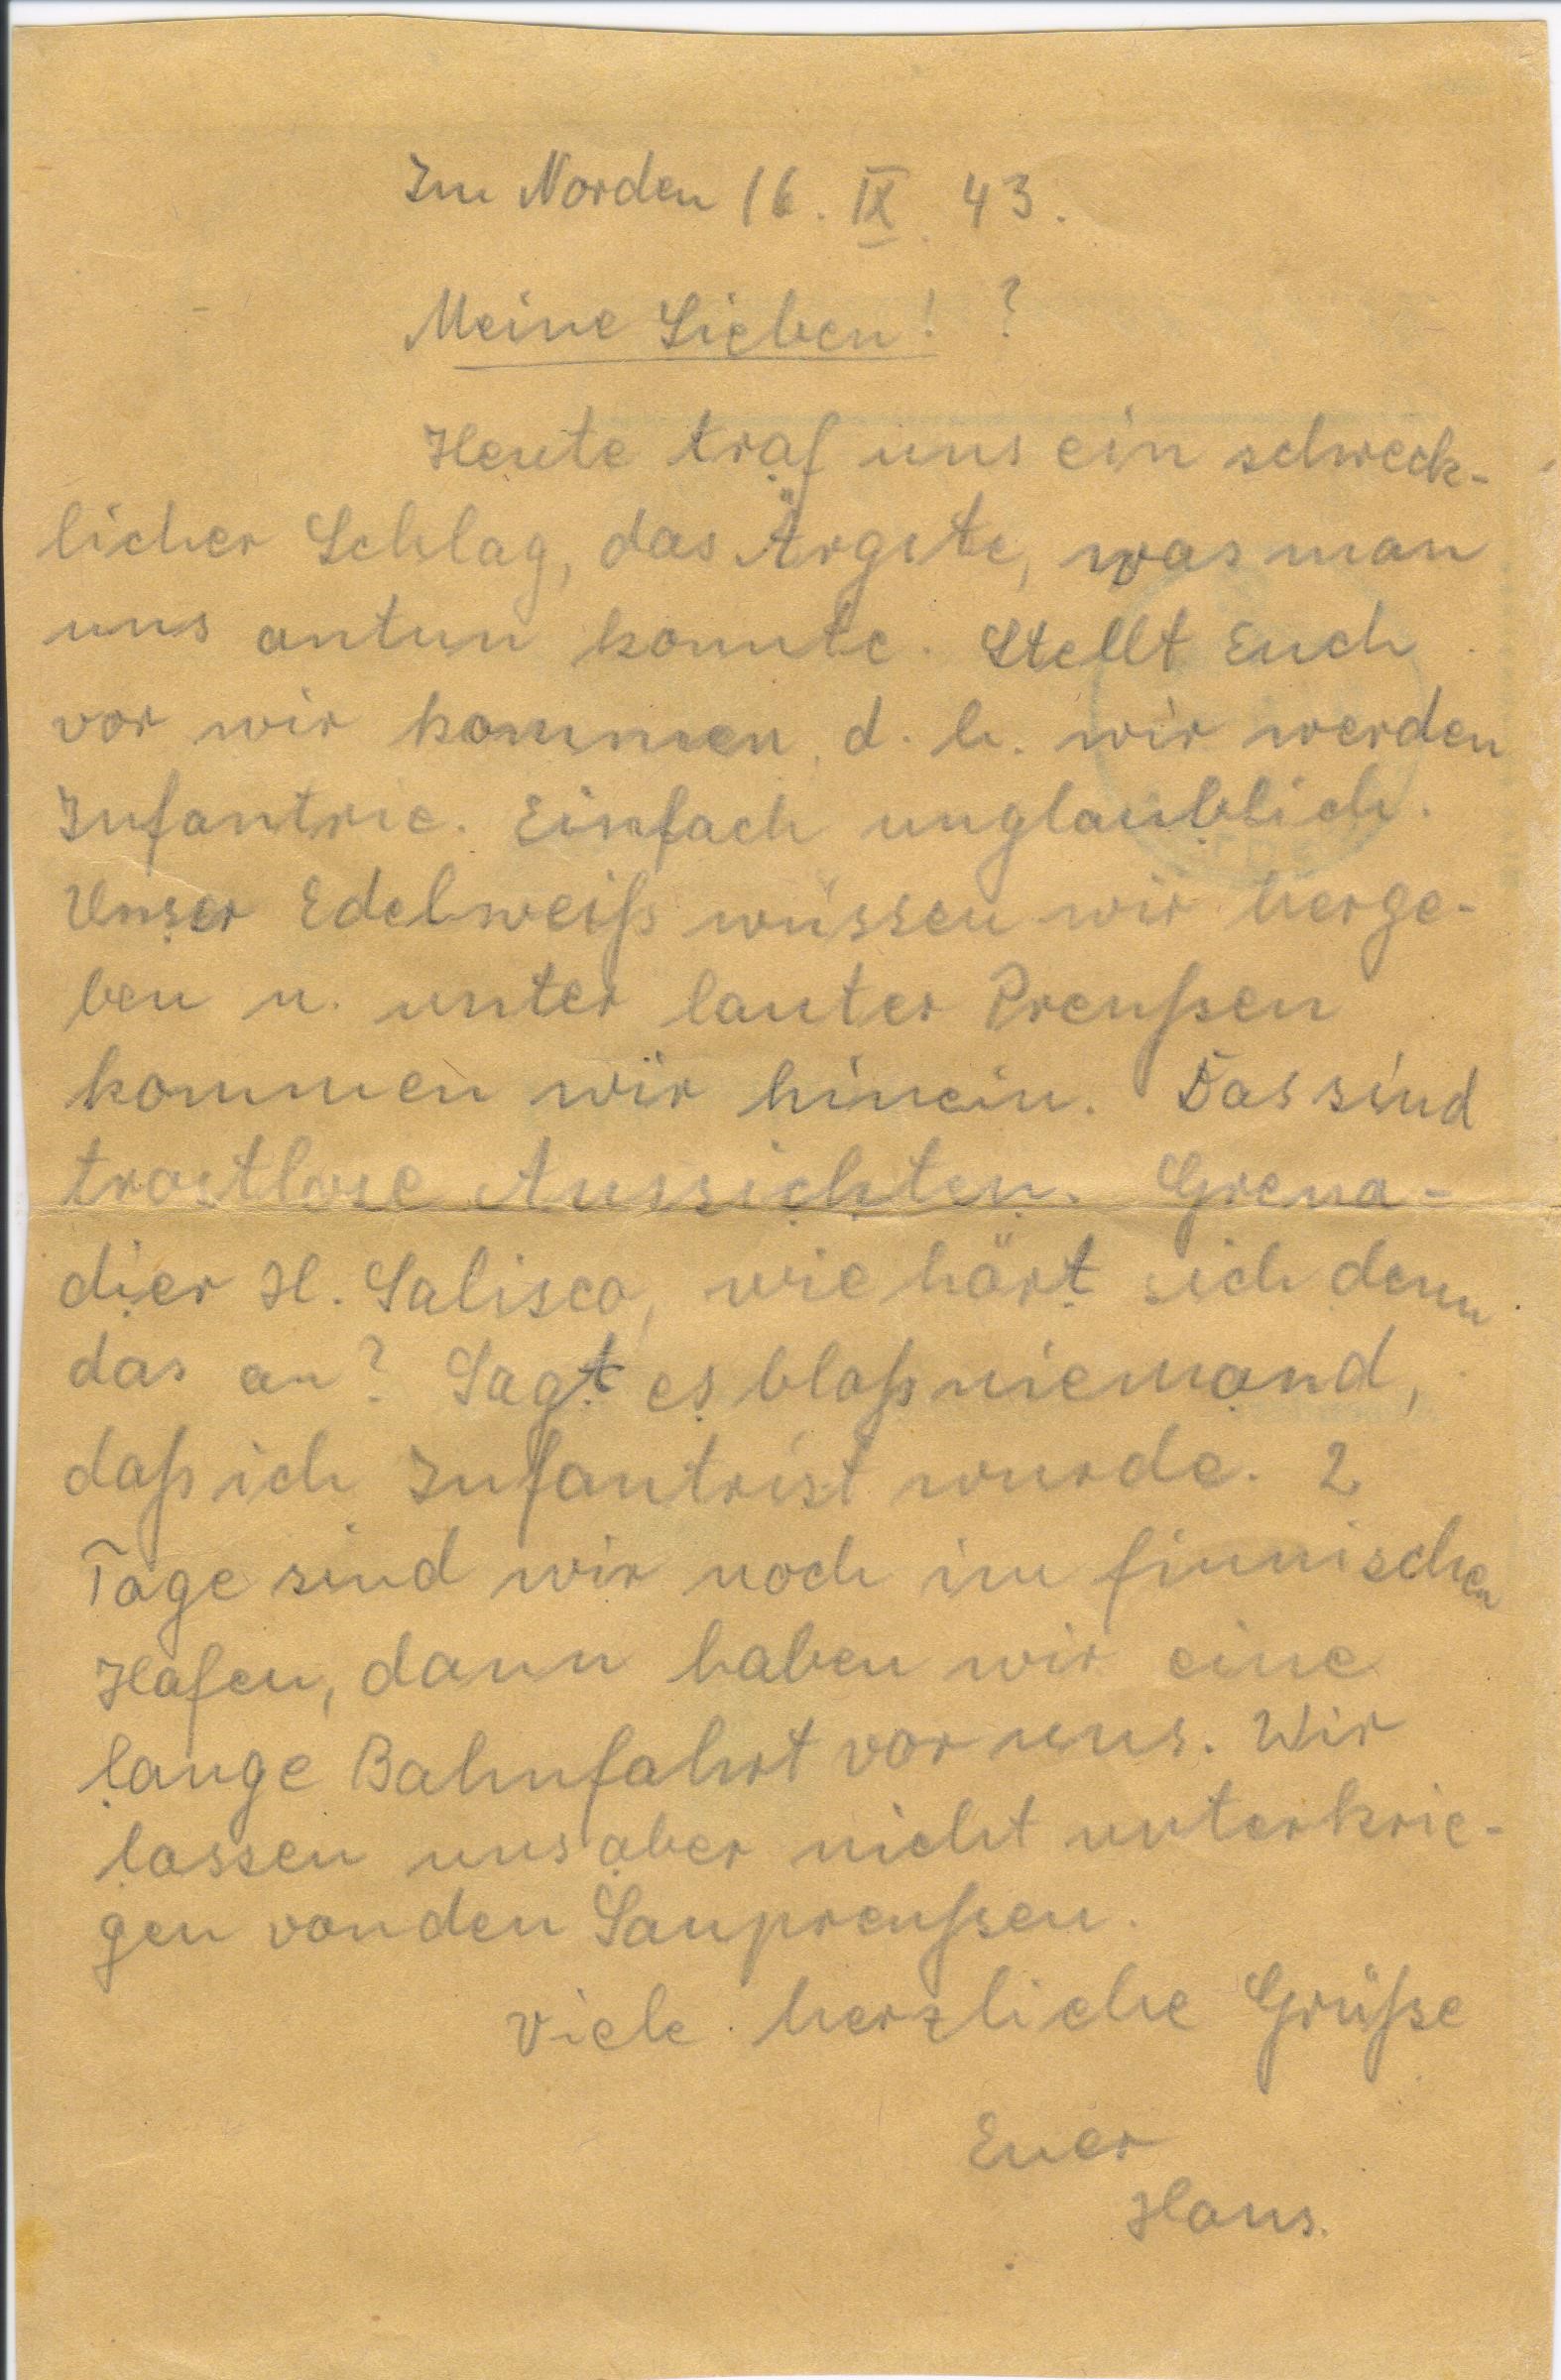 Im Norden 16. IX. 43.
Meine Lieben! ?
Heute traf uns ein schreck-
licher Schlag, das Ärgste, was man
uns antun konnte. Stellt Euch
vor wir kommen, d. h. wir werden
Infantrie. Einfach unglaublich.
Unser Edelweiß müssen wir herge-
ben u. unter lauter Preußen
kommen wir hinein. Das sind
trostlose Aussichten. Grena-
dier H. Salisco, wie hört sich denn
das an? Sagt es bloß niemand,
daß ich Infantrist wurde. 2
Tage sind wir noch im finnischen
Hafen, dann haben wir eine
lange Bahnfahrt vor uns. Wir
lassen uns aber nicht unterkrie-
gen von den Saupreußen.
Viele herzliche Grüße
Euer
Hans.